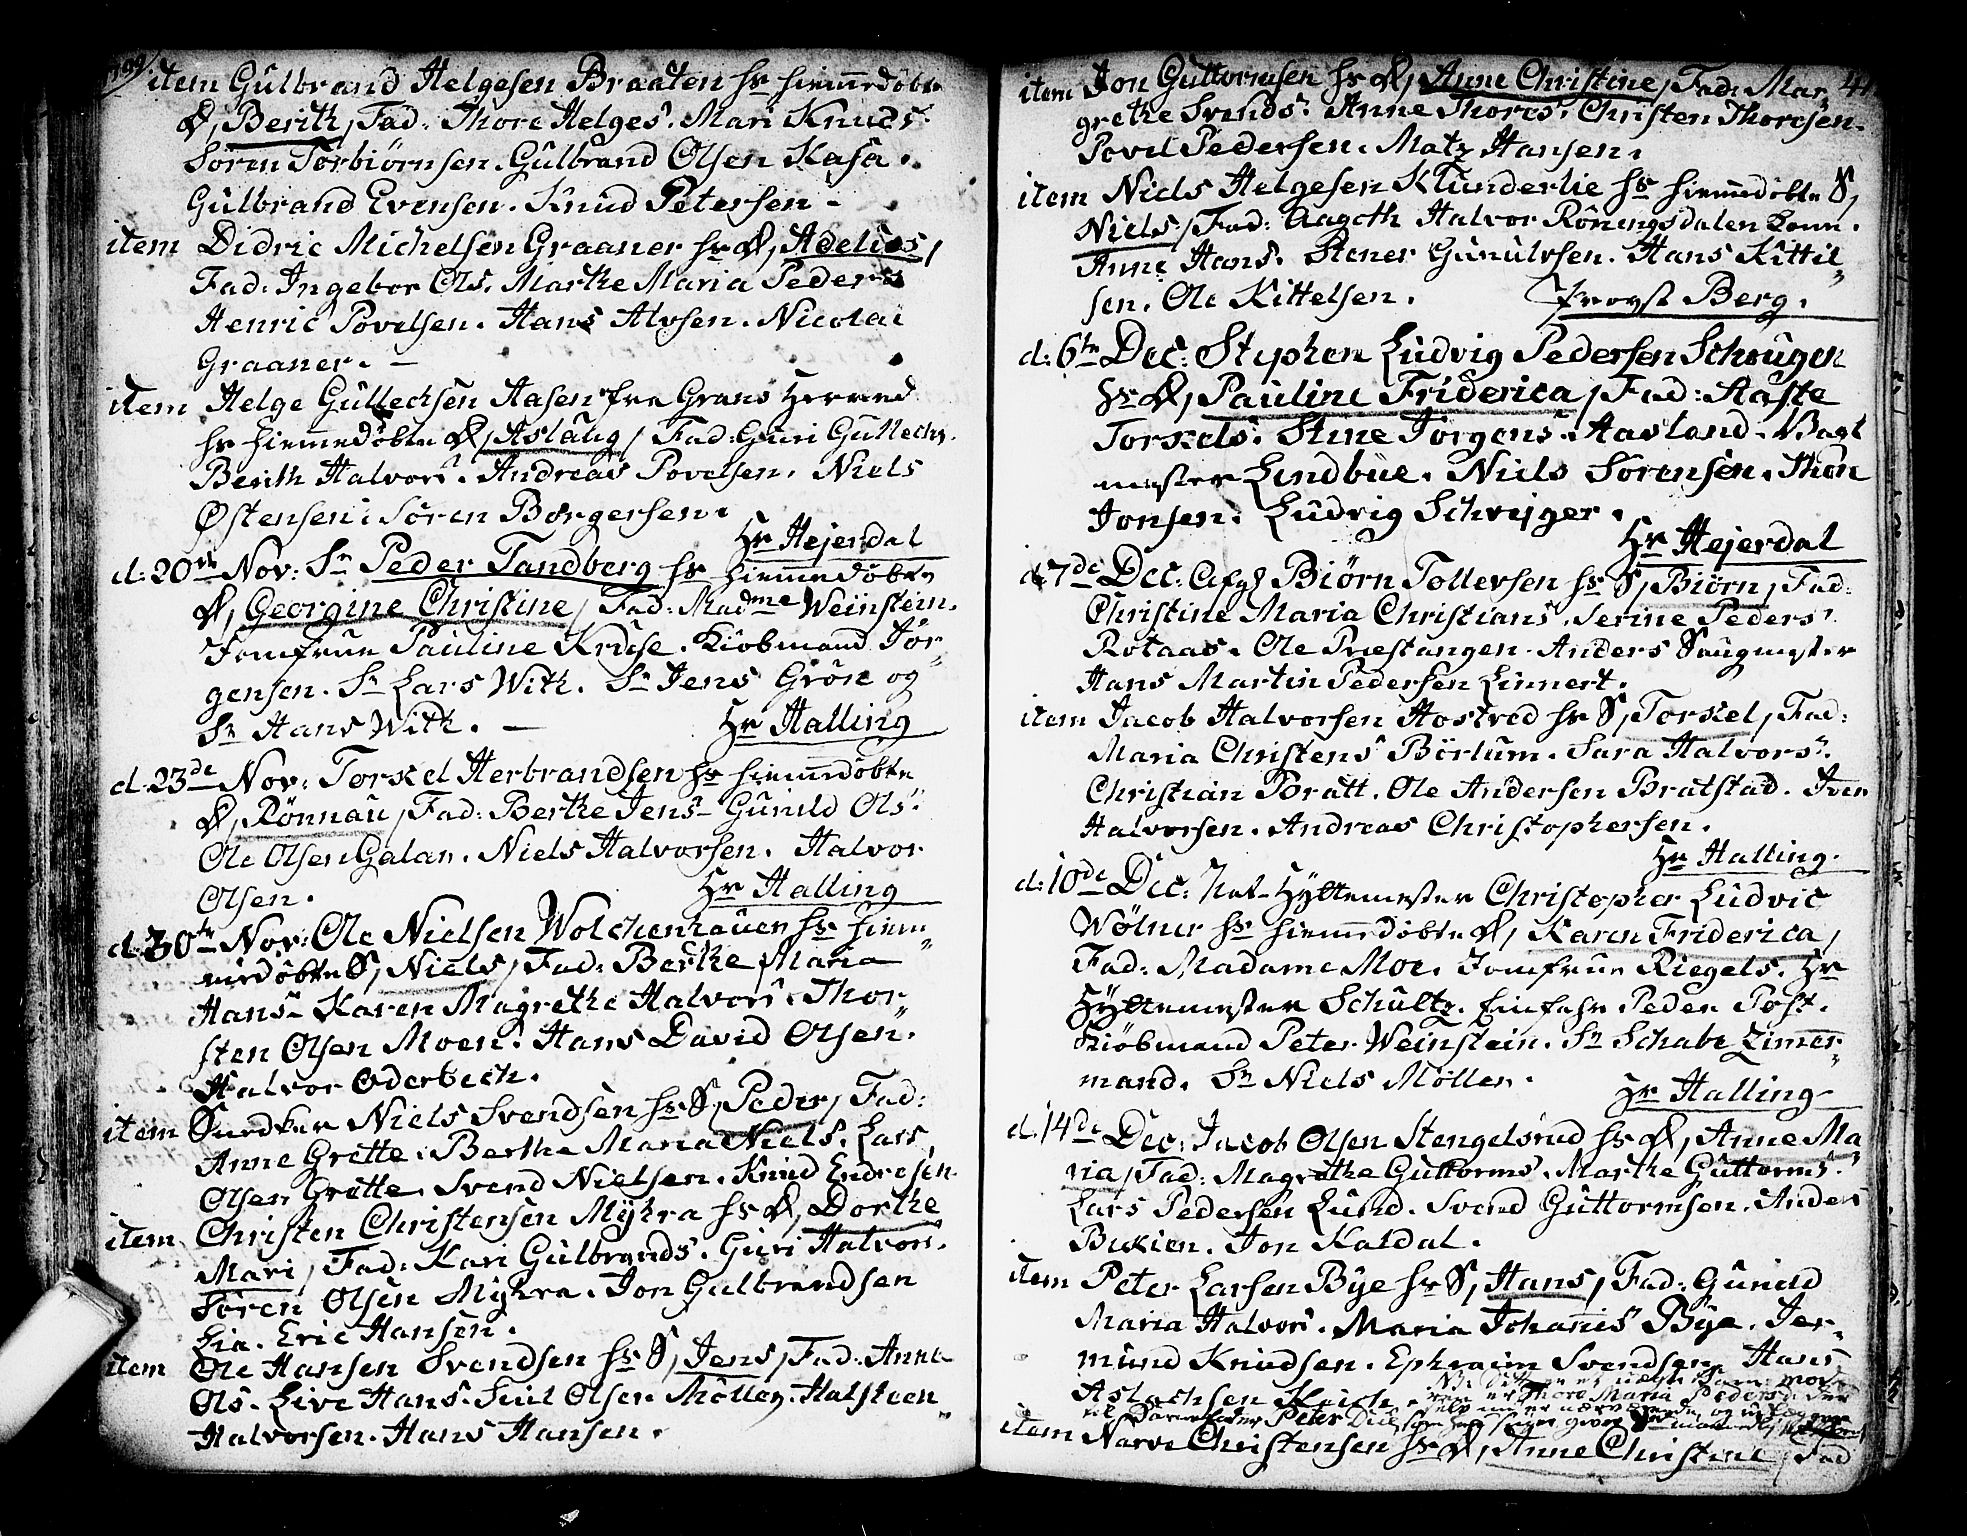 item Gulbrand Helgesen Braaten hs hiemedøbte
D, Berith, Fad: Thore Helges. Mari Knuds.
Sören Torbiörnsen. Gulbrand Olsen Kasa.
Gulbrand Evensen. Knud Petersen -
item Didric Michelsen Graaner hs D, Adelus,
Fad: Ingebor Ols. Marthe Maria Peders
Henric Povelsen. Hans Alvsen. Nicolai
Graaner. -
item Helge Gullechsen Aasen fra Grans Herred
hs hiemedøbte D, Aslaug, Fad: Guri Gullechs.
Berith Halvors. Andreas Povelsen. Niels
Østensen. Sören Borgersen.
Hr Hejerdal
d: 20de Nov: Sr Peder Tandberg hs hiemedøbte
D, Georgine Christine, Fad: Madme Weinstein.
Jomfrue Pauline Kruse. Kiöbmand Jör-
gensen. Sr Lars With. Sr Jens Grön og
Sr Hans With. -
Hr Halling
d. 23de Nov: Torkel Herbrandsen hs hiemedøbte
D, Rönnau, Fad: Berthe Jens- Gunild Ols.
Ole Olsen Galan. Niels Halvorsen. Halvor
Olsen.
Hr Halling
d. 30te Nov: Ole Nielsen Wolchenhauer hs hiem-
medøbte S, Niels, Fad: Berthe Maria
Hans- Karen Magrethe Halvors. Thor-
sten Olsen Moen. Hans David Olsen.
Halvor Oderbech.
item Snedker Niels Svendsen hs S, Peder, Fad:
Anne Grötte. Berthe Maria Niels. Lars
Olsen Grötte. Svend Nielsen. Knud Endresen
item Christen Christensen Myhra hs D, Dorthe
Mari, Fad: Kari Gulbrands. Guri Halvors.
Sören Olsen Myhra. Jon Gulbrandsen
Lia. Eric Hansen.
item Ole Hansen Svendsen hs S, Jens, Fad: Anne
Ols. Live Hans. Juul Olsen Möller. Halsteen
Halvorsen. Hans Hansen.
item Jon Guttormsen hs D, Anne Christine, Fad: Mar-
grethe Svends. Anne Thores. Christen Thoresen.
Povel Pedersen. Matz Hansen.
item Niels Helgesen Klunderlie hs hiemedøbte S,
Niels, Fad: Aagoth Halvor Röningsdalen Kone.
Anne Hans. Stener Gunulvsen. Hans Kittil-
sen. Ole Kittelsen.
Provst Berg.
d: 6te Dec: Stephen Ludvig Pedersen Schougen
hs D, Pauline Friderica, Fad: Aaste
Torkels. Stine Jörgens. Aasland. Vagt
mester Lindbue. Niels Sörensen. Thon
Jonsen. Ludvig Schrijger.
Hr Hejerdal
d. 7de Dec: Afg Biörn Tollevsen hs S, Biörn, Fad:
Christine Maria Christians. Serine Peders.
Rotaas. Ole Præstangen. Anders Saugmester
Hans Martin Pedersen Linnert.
item Jacob Halvorsen Hostved hs S, Torkel, Fad:
Maria Christens Börlum. Sara Halvors.
Christian Pratt. Ole Andersen Bratstad. Iver
Halvorsen. Andreas Christophersen.
Hr Halling.
d: 10de Dec: Hyttemester Christopher Ludvic
Wölner hs hiemedøbte D, Karen Friderica,
Fad: Madame Moe. Jomfrue Riegels. Hr
Hyttemester Schultz. Einfahr Peder Post.
Kiöbmand Peter Weinstein. Sr Schabe Zimer-
mand. Sr Niels Möller.
Hr Halling
d. 14de Dec: Jacob Olsen Stengelsrud hs D, Anne Ma
ria, Fad: Magrethe Guttorms. Marthe Guttorms.
Lars Pedersen Lund. Svend Guttormsen. Anders
Buxien. Jon Kaldal.
item Peter Larsen Bye hs S, Hans, Fad: Gunild
Maria Halvors. Maria Johanis Bye. Jer-
mund Knudsen. Ephraim Svendsen. Hans
Aslachsen Krich.
item Narve Christensen hs D, Anne Christine, Fad